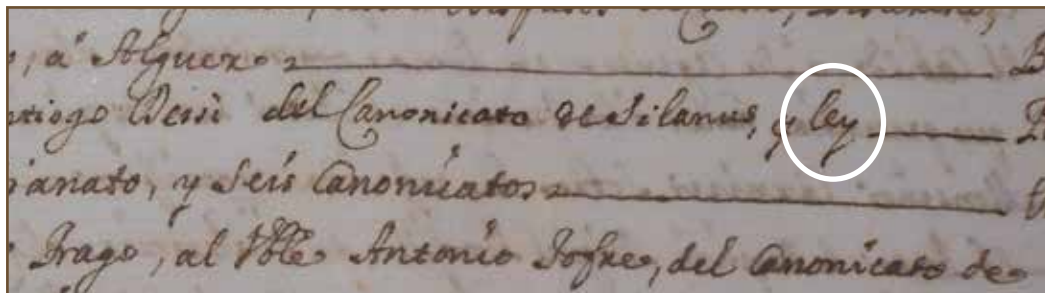 , a Alguer
ntiago Dessi del Canonicato de Silanus, y ley
anato, y seis Canonicatos
Frago, al Nble Antonio Jofre, del Canonicato de